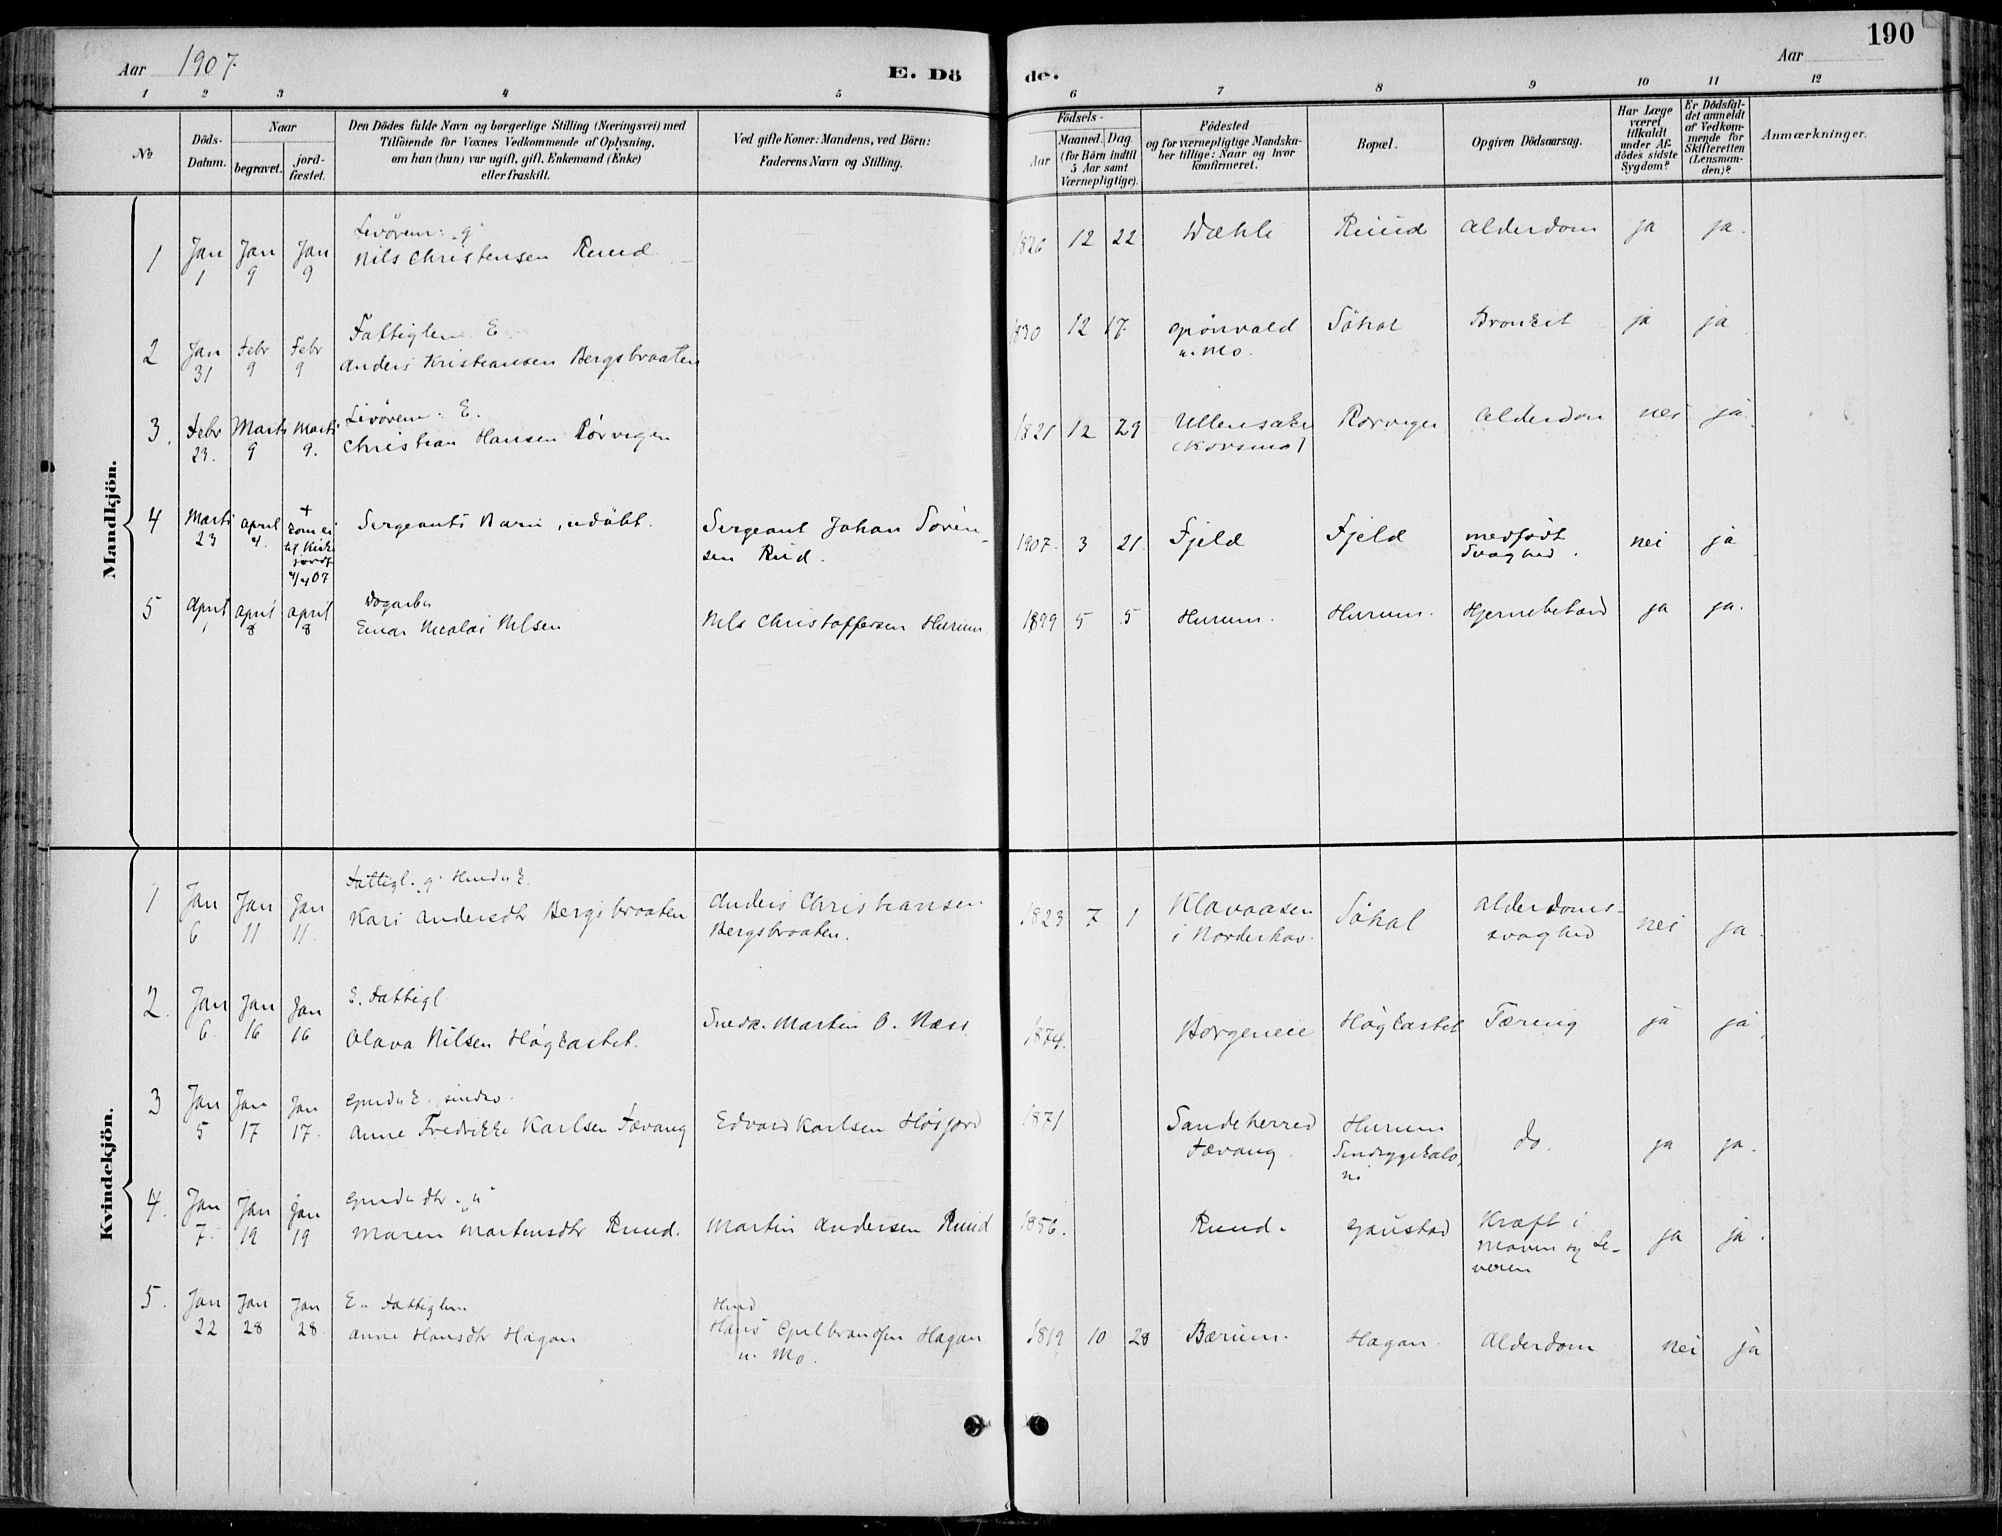 190
Aar 1907.
E. Dö
de.
Aar
1 2 3 4 5 6 7 8 9 10 11 12
No
Döds-Datum.
Naar
begravet.
jord-fæstet.
Den Dödes fulde Navn og borgerlige Stilling (Næringsvei) med
Tilföiende for Voxnes Vedkommende af Oplysning,
om han (hun) var ugift, gift, Enkemand (Enke)
eller fraskilt.
Ved gifte Koner: Mandens, ved Börn:
Faderens Navn og Stilling.
Födsels-
Aar
Maaned. Dag.
(for Börn indtil
5 Aar samt
Værnepligtige).
Födested
og for værnepligtige Mandska-
ber tillige: Naar og hvor
konfirmeret.
Bopæl.
Opgiven Dödsaarsag.
Har Læge
været
tilkaldt
under Af-
dödes sidste
Sygdom?
Er Dödsfal-
det anmeldt
af Vedkom-
mende for
Skifteretten
(Lensman-
den)?
Anmærkninger.
Mandkjön.
1 Jan 1 Jan 9 Jan 9 Nils Christensen Ruud 1826 12 22 Wæhle Ruud Alderdom ja ja.
2 Jan 31 Febr 9 Febr 9 Fattiglem E.
Anders Kristiansen Bergsbraaten 1830 12 17 Grönvald
u. Mo. Søhol Bronkit ja ja
3. Febr 23. Marts 9 Marts 9. E.
Christian Hansen Rørvigen 1821 12 29 Ullensaker
(Korsmo) Rørvigen Alderdom nei ja.
4 Marts 23 April 4. + Kom ei til Kirke jordf 4/4 07 Sergeants Barn, udöbt. Sergeant Johan Sören-
sen Rud. 1907. 3 21. Fjeld Fjeld medfödt
Svaghed. nei ja
5 April 1 April 8 April 8 Dagarb
Einar Nicolai Nilsen Nils Christoffersen Hurum. 1899 5 5 Hurum. Hurum. ja ja.
Kvindekjön.
1 Jan 6 Jan 11 Jan 11. Fattigl.
Kari Andersdtr Bergsbraaten Anders Christiansen
Bergsbraaten. 1823 7 1 Klavaasen
i Norderhov. Søhol Alderdoms-
svaghed nei ja.
2. Jan 6 Jan 16 Jan 16 E. Fattigl
Olava Nilsen Høgkastet. Snedk. Martin O. Næss 1874. Borgeneie Høgkastet Tæring ja ja.
3 Jan 5 Jan 17 Jan 17.
Anne Fredrikke Karlsen Fævang Edvard Karlsen Høifjord 1871 Sandeherred
Fævang. Hurum do. ja ja.
4. Jan 7. Jan 19 Jan 19 Gmd. dtr. "u"
Maren Martinsdtr Ruud. Martin Andersen Ruud 1856. Ruud. Gaustad Kræft i
Maven og Le-
veren ja ja.
5. Jan 22 Jan 28 Jan 28. E. Fattiglem
Anne Hansdtr Hagan Hmd
Hans Gulbrandsen Hagan
u. Mo. 1819 10 28 Bærum. Hagan. Alderdom nei ja